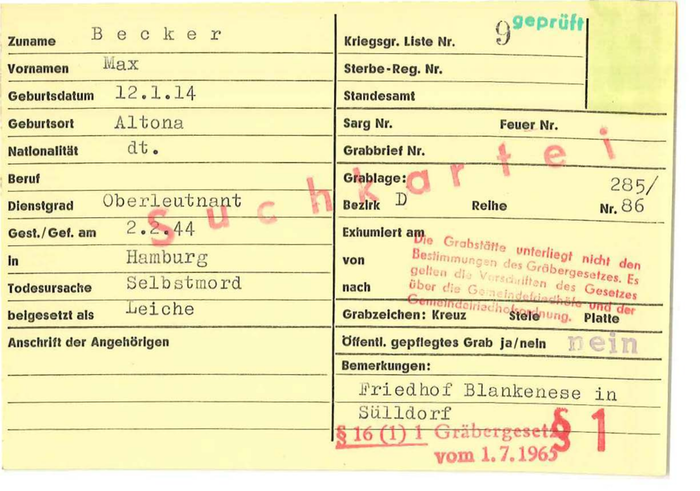 Zuname Becker
Vornamen Max
Geburtsdatum 12.1.14
Geburtsort Altona
Nationalität dt.
Beruf
Dienstgrad Oberleutnant
Gest./Gef. am 2.2.44
in Hamburg
Todesursache Selbstmord
beigesetzt als Leiche
Anschrift der Angehörigen
geprüft
Kriegsgr. Liste Nr. 9
Sterbe-Reg. Nr.
Standesamt
Sarg Nr. Feuer Nr.
Grabbrief Nr.
Suchkartei
Grablage: 285/
Bezirk D Reihe Nr. 86
Exhumiert am
von
nach
Die Grabstätte unterliegt nicht den
Bestimmungen des Gräbergesetzes. Es
gelten die Vorschriften des Gesetzes
über die Gemeindefriedhöfe und der
Gemeindefriedhofsordnung.
Grabzeichen: Kreuz Stele Platte
Öffentl. gepflegtes Grab ja/nein nein
Bemerkungen:
Friedhof Blankenese in
Sülldorf
§ 16 (1) 1 Gräbergesetz
vom 1.7.1965
§ 1